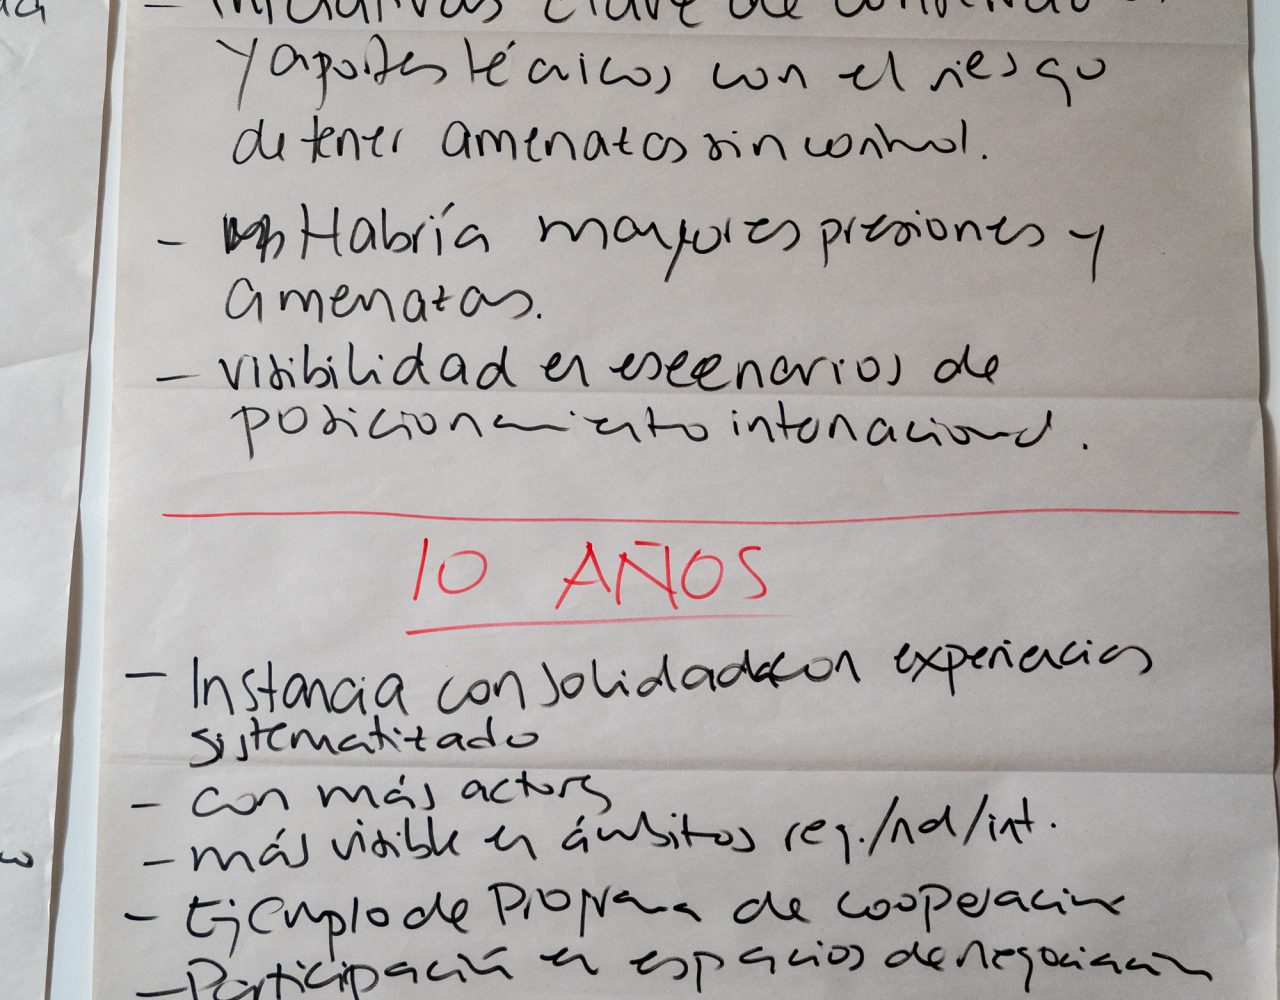 - Iniciativas clave de contenido
y aportes técnicos con el riesgo
de tener amenazas sin control.
- Habría mayores presiones y
amenazas.
- visibilidad en escenarios de
posicionamiento internacional.
10 AÑOS
- Instancia consolidada con experiencias
sistematizado
- con más actores
- más visible en ámbitos reg./nal/int.
- Ejemplo de Programa de cooperación
- Participación en espacios de negociación